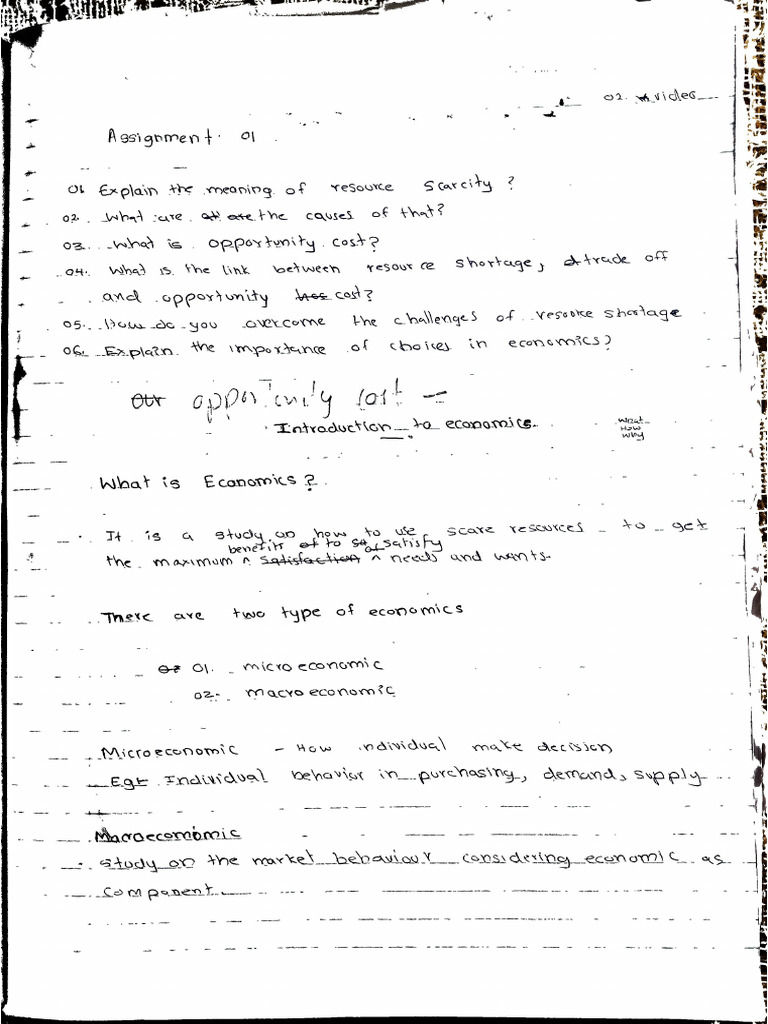 02. video
Assignment. 01
01. Explain the meaning of resource scarcity ?
02. What are the causes of that?
03. What is opportunity cost?
04. What is the link between resource shortage, trade off
and opportunity cost?
05. How do you overcome the challenges of resource shortage
06. Explain the importance of choices in economics?
opportunity cost –
Introduction to economics.
What
How
Why
What is Economics?
• It is a study on how to use scare resources to get
benefits to satisfy
the maximum ^ of ^ needs and wants.
There are two type of economics
01. microeconomic
02. macroeconomic
Microeconomic – How individual make decision
Eg: Individual behavior in purchasing, demand, supply
Macroeconomic
• study on the market behaviour considering economic as
component